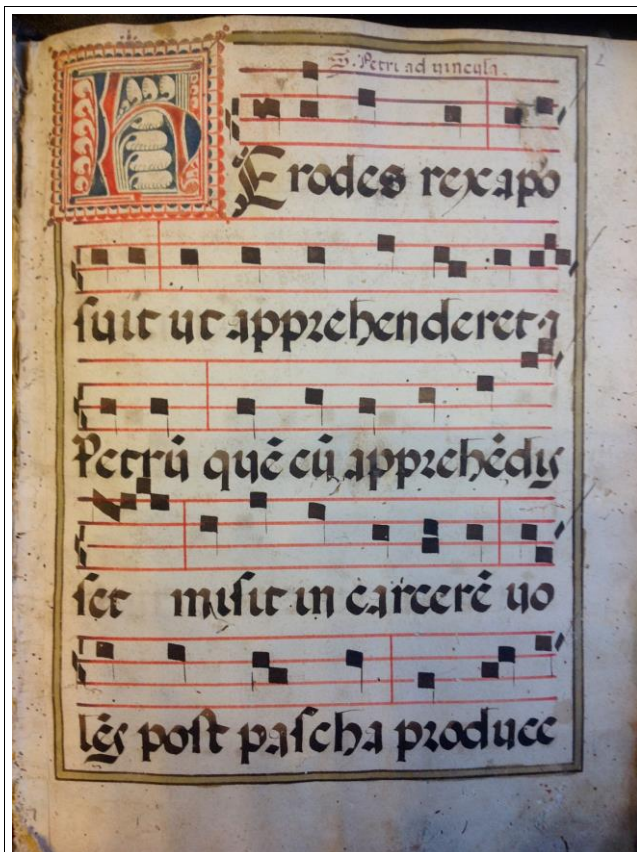 S. Petri ad uincula.
2
HErodes rex apo
suit ut apprehenderet &
Petrũ quẽ cũ apprehẽdis
set misit in carcerẽ uo
lẽs post pascha produce